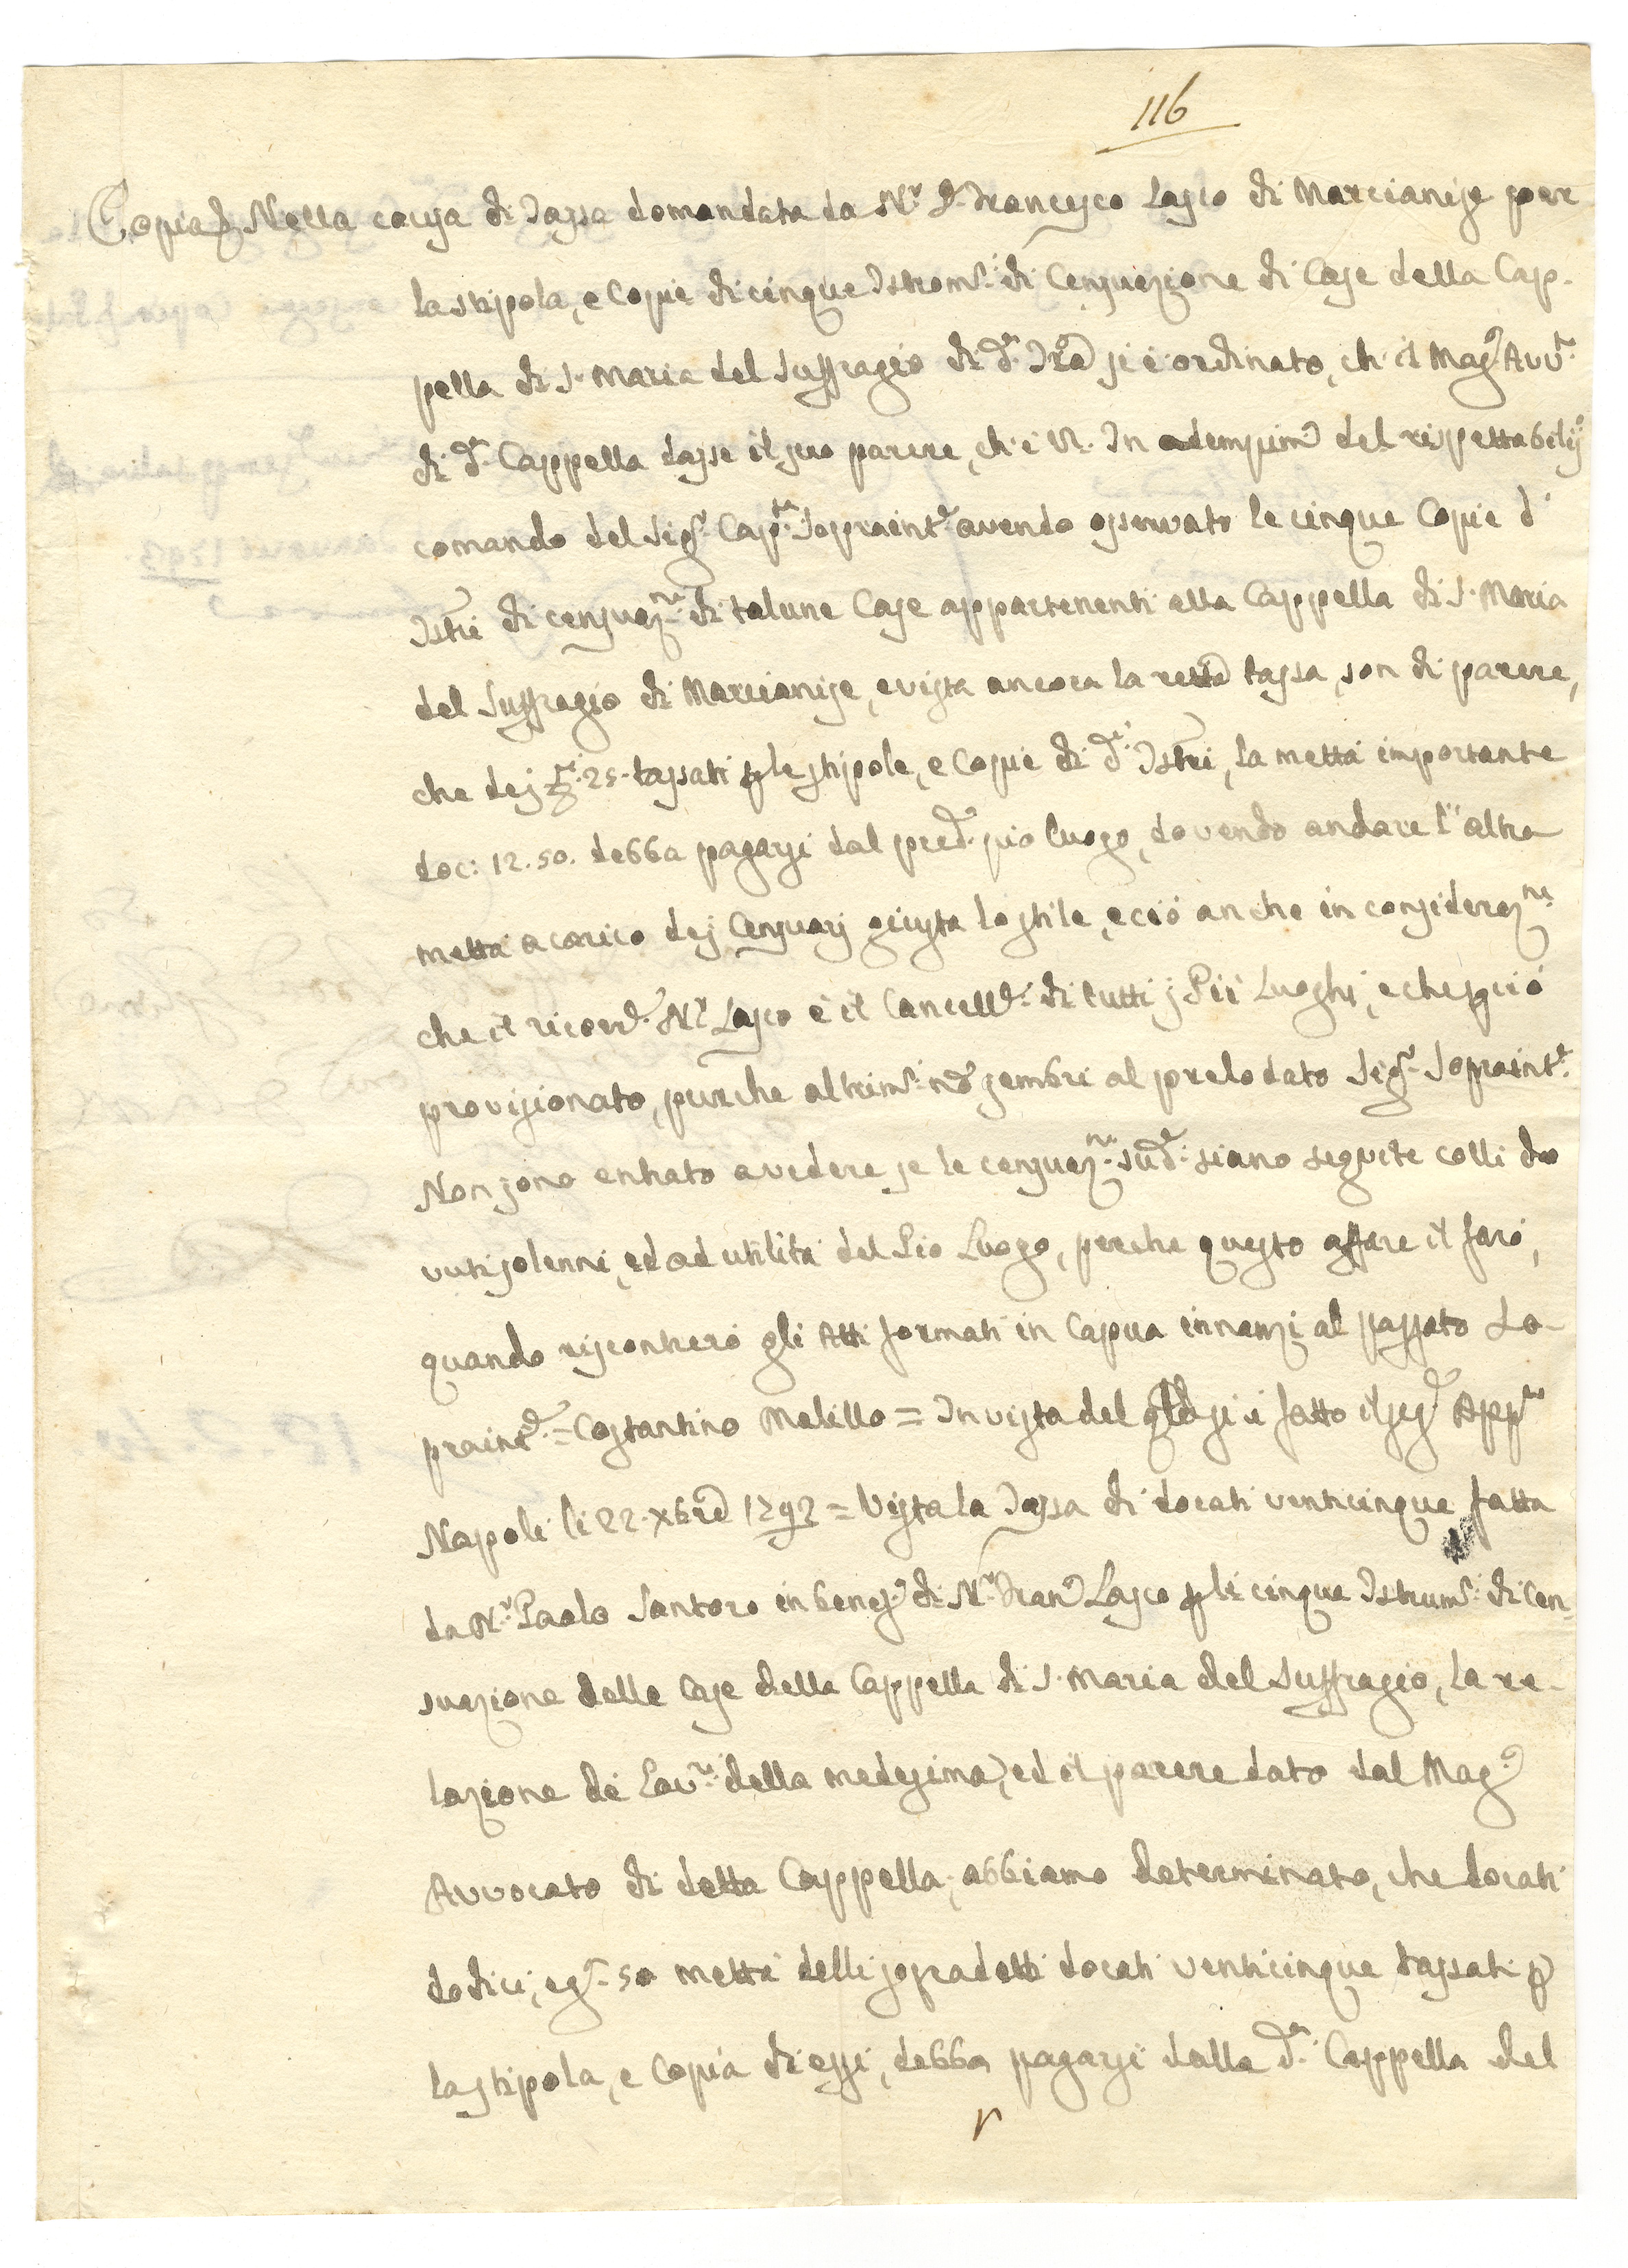 116
Copia Nella causa di Tassa domandata da Nr. D. Francesco Lasco di Marcianise per
la stipola, e Copie di cinque Istromti. di Censuazione di Case della Cap-
pella di S. Maria del Suffragio di da. Tra si è ordinato, ch'il Mago. Avvto.
di da. Cappella dasse il suo parere, ch'è Vt. In adempimo del rispettabiliso
comando del Sigr. Capo. Sopraintte. avendo osservato le cinque Copie d'
Istri di censuazne. di talune Case appartenenti alla Cappella di S. Maria
del Suffragio di Marcianise, e vista ancora la retta tassa, son di parere,
che dej 25. tassati p le stipole, e Copie di di. Istri, la mettà importante
doc: 12. 50. debba pagarsi dal pred. pio luogo, dovendo andare l'altra
mettà a carico dej Censuarj giusta lo stile, e ciò anche in considerazne.
che il ricord. Nr. Lasco è il Cancelle. di tutti j Pii Luoghi, e che p ciò
provisionato, purche altrimti. no sembri al prelodato Sigr. Sopraintte.
Non sono entrato a vedere se le censuazni. sude. siano seguite colli do
vuti solenni, ed ad utilità del Pio Luogo, perche questo affare il farò,
quando riscontrerò gli Atti formati in Capua innanzi al passato So-
praintde. = Costantino Melillo = In vista del qle si è fatto il seg. Appto
Napoli li 22. Xbre 1792 = Vista la Tassa di docati venticinque fatta
da Nr. Paolo Santoro in benefo. di Nr. Frano Lasco p li cinque Istrumti. di Cen-
suazione delle Case della Cappella di S. Maria del Suffragio, la re-
lazione de Gavri. della medesima, ed il parere dato dal Mago.
Avvocato di detta Cappella; abbiamo determinato, che docati
dodici, e gr. 50 mettà delli sopradetti docati venticinque tassati p
la stipola, e Copia di essi, debba pagarsi dalla da. Cappella del